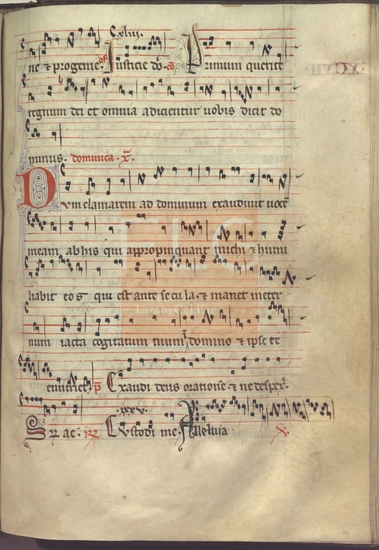 .xlıı.
ne & progenie. Iusticie dō. Primum querite
regnum dei et omnia adicientur uobis dicit do
minus. dominica .x.
Dum clamarem ad dominum exaudiuit uocē
meam abhis qui appropinquant michi & humi
liabit eos qui est ante secula & manet in eter
num iacta cogitatum tuum in domino & ipse te
enutriet. Exaudi deus orationē & ne despex̄.
.xxxv.
Custodi me. Alleluia